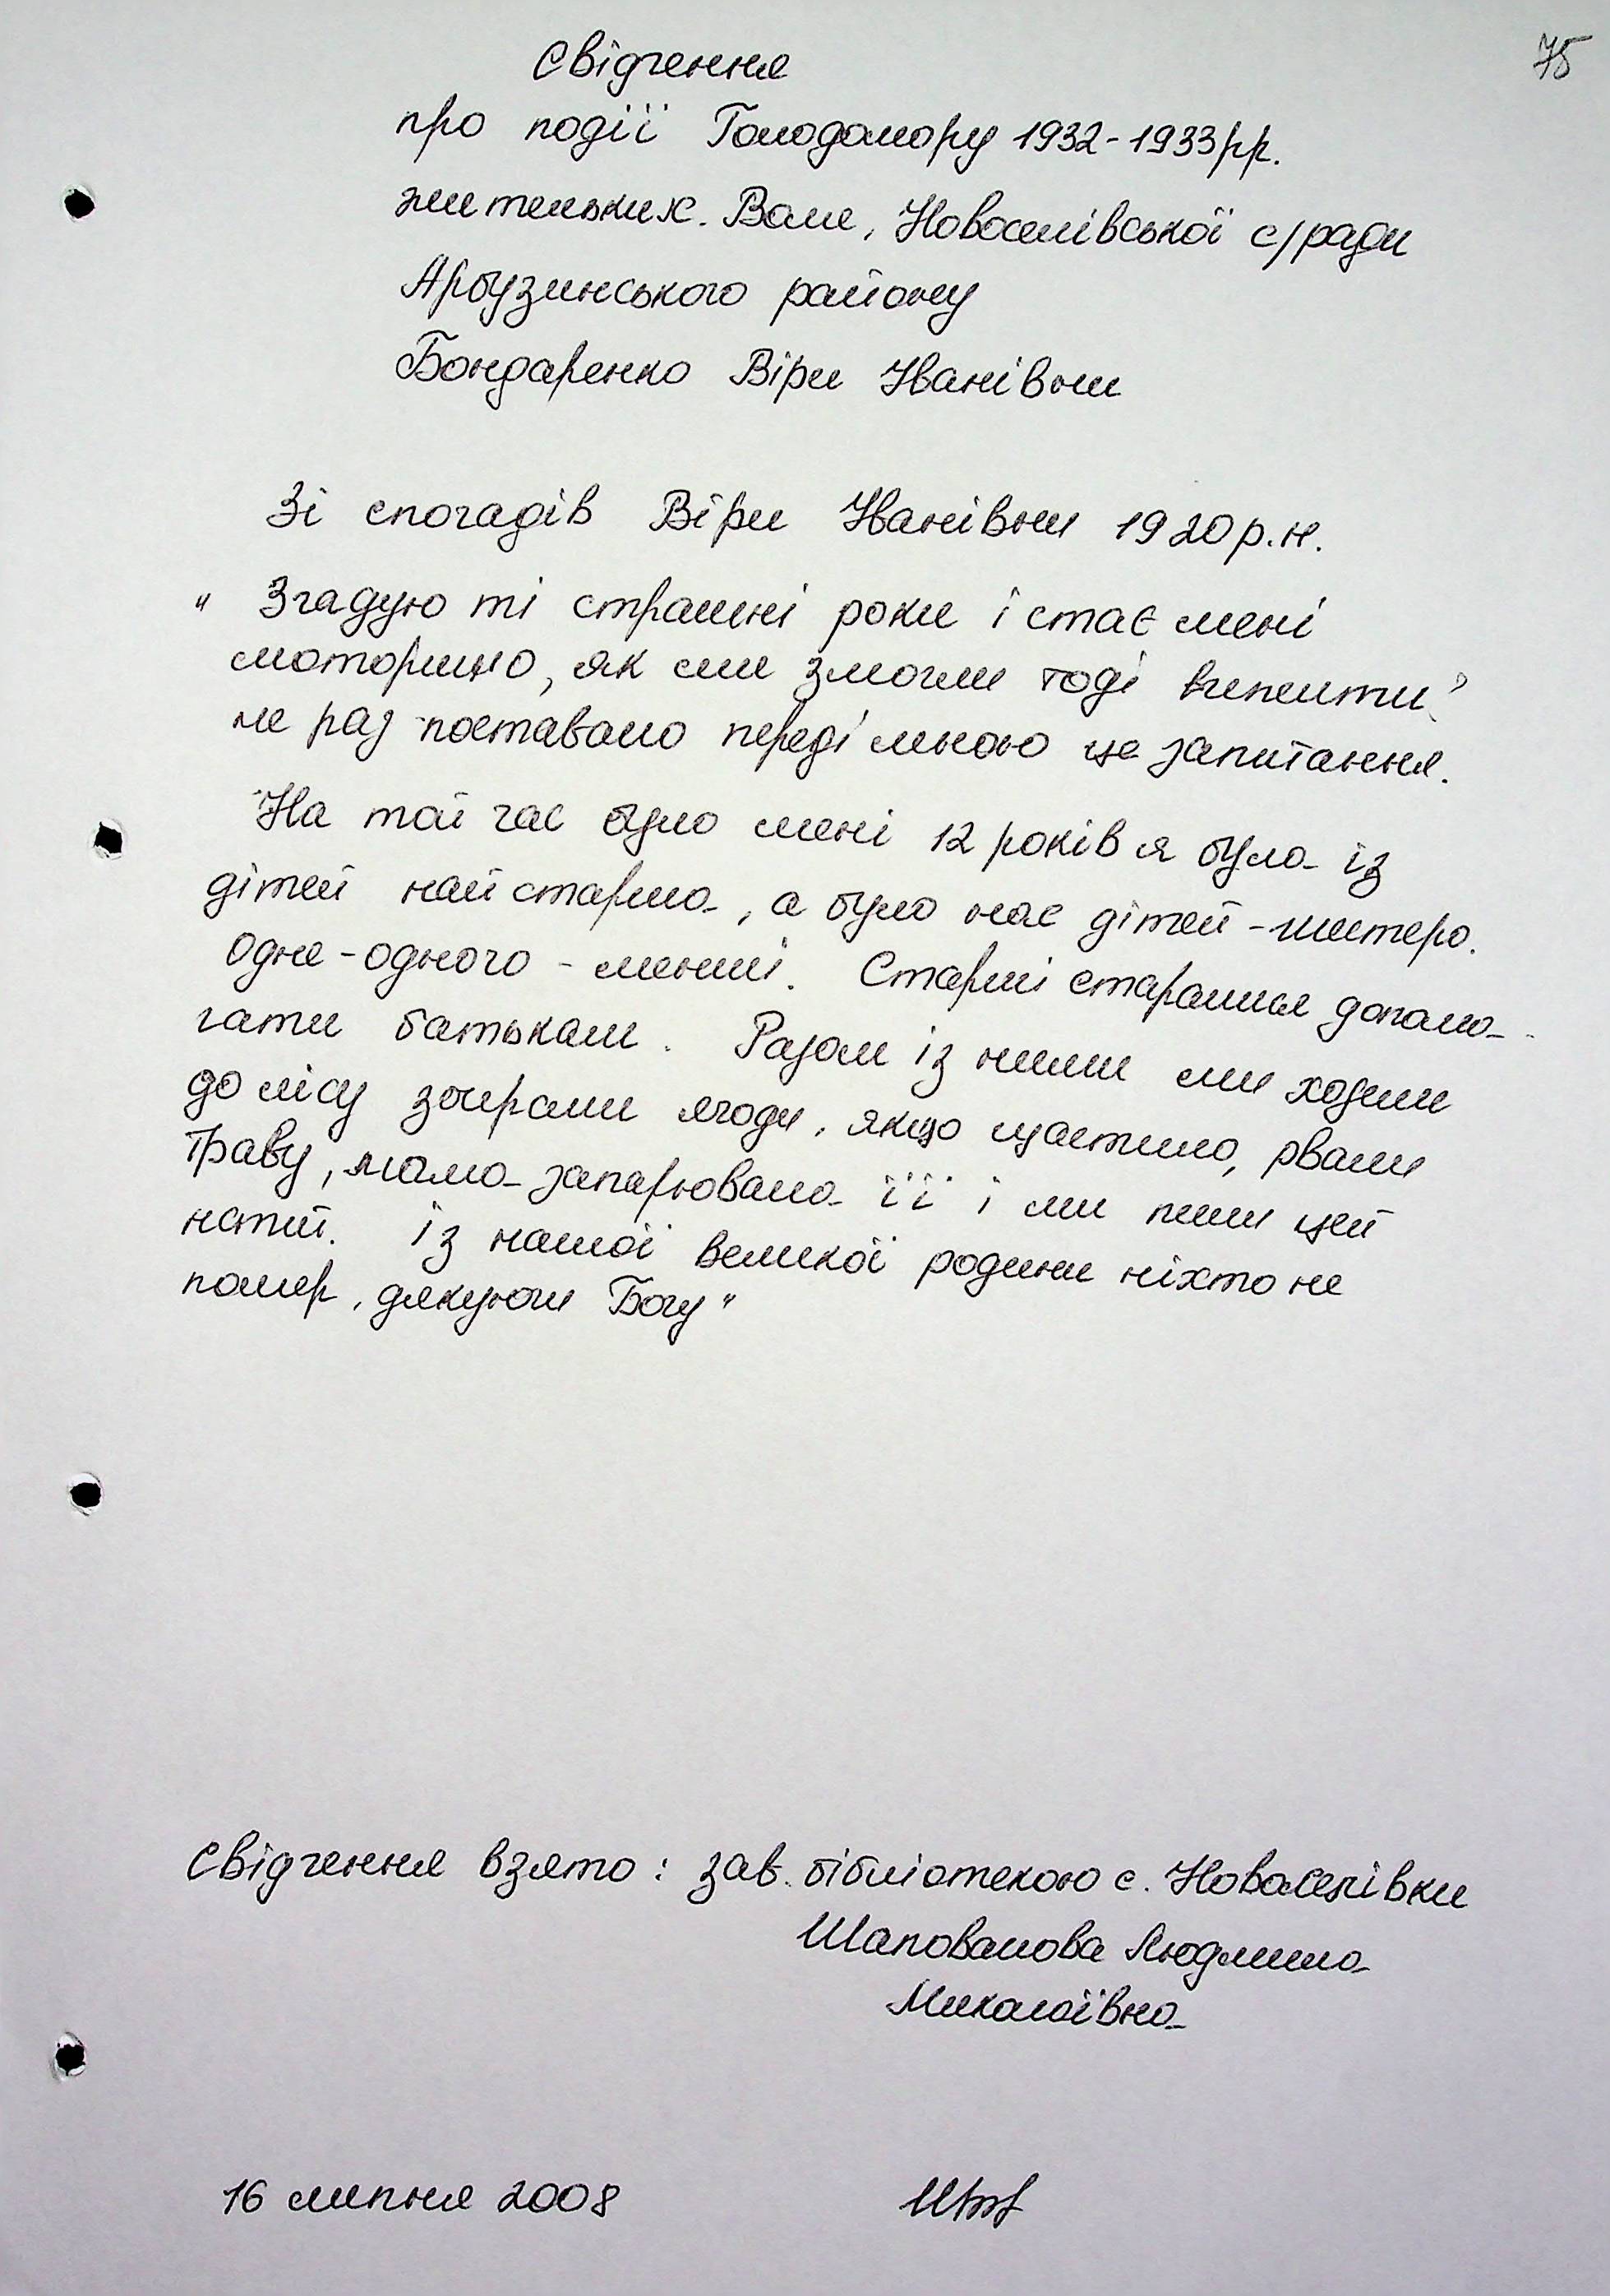 75
Свідчення
про події Голодомору 1932-1933рр.
жительки х. Воля, Новоселівської с/ради
Арбузинського району
Бондаренко Віри Іванівни
Зі спогадів Віри Іванівни 1920 р.н.
" Згадую ті страшні роки і стає мені
моторшно, як ми змогли тоді вижити?
не раз поставало переді мною це запитання.
На той час було мені 12 років я була із
дітей найстарша, а було нас дітей - шестеро.
Одне - одного - менші. Старші старалися допома-
гати батькам. Разом із ними ми ходили
до лісу збирали ягоди, якщо щастило, рвали
траву, мама запарювала її і ми пили цей
напій. Із нашої великої родини ніхто не
помер, дякуючи Богу"
Свідчення взято: зав. бібліотекою с. Новоселівки
Шаповалова Людмила
Миколаївна
16 липня 2008